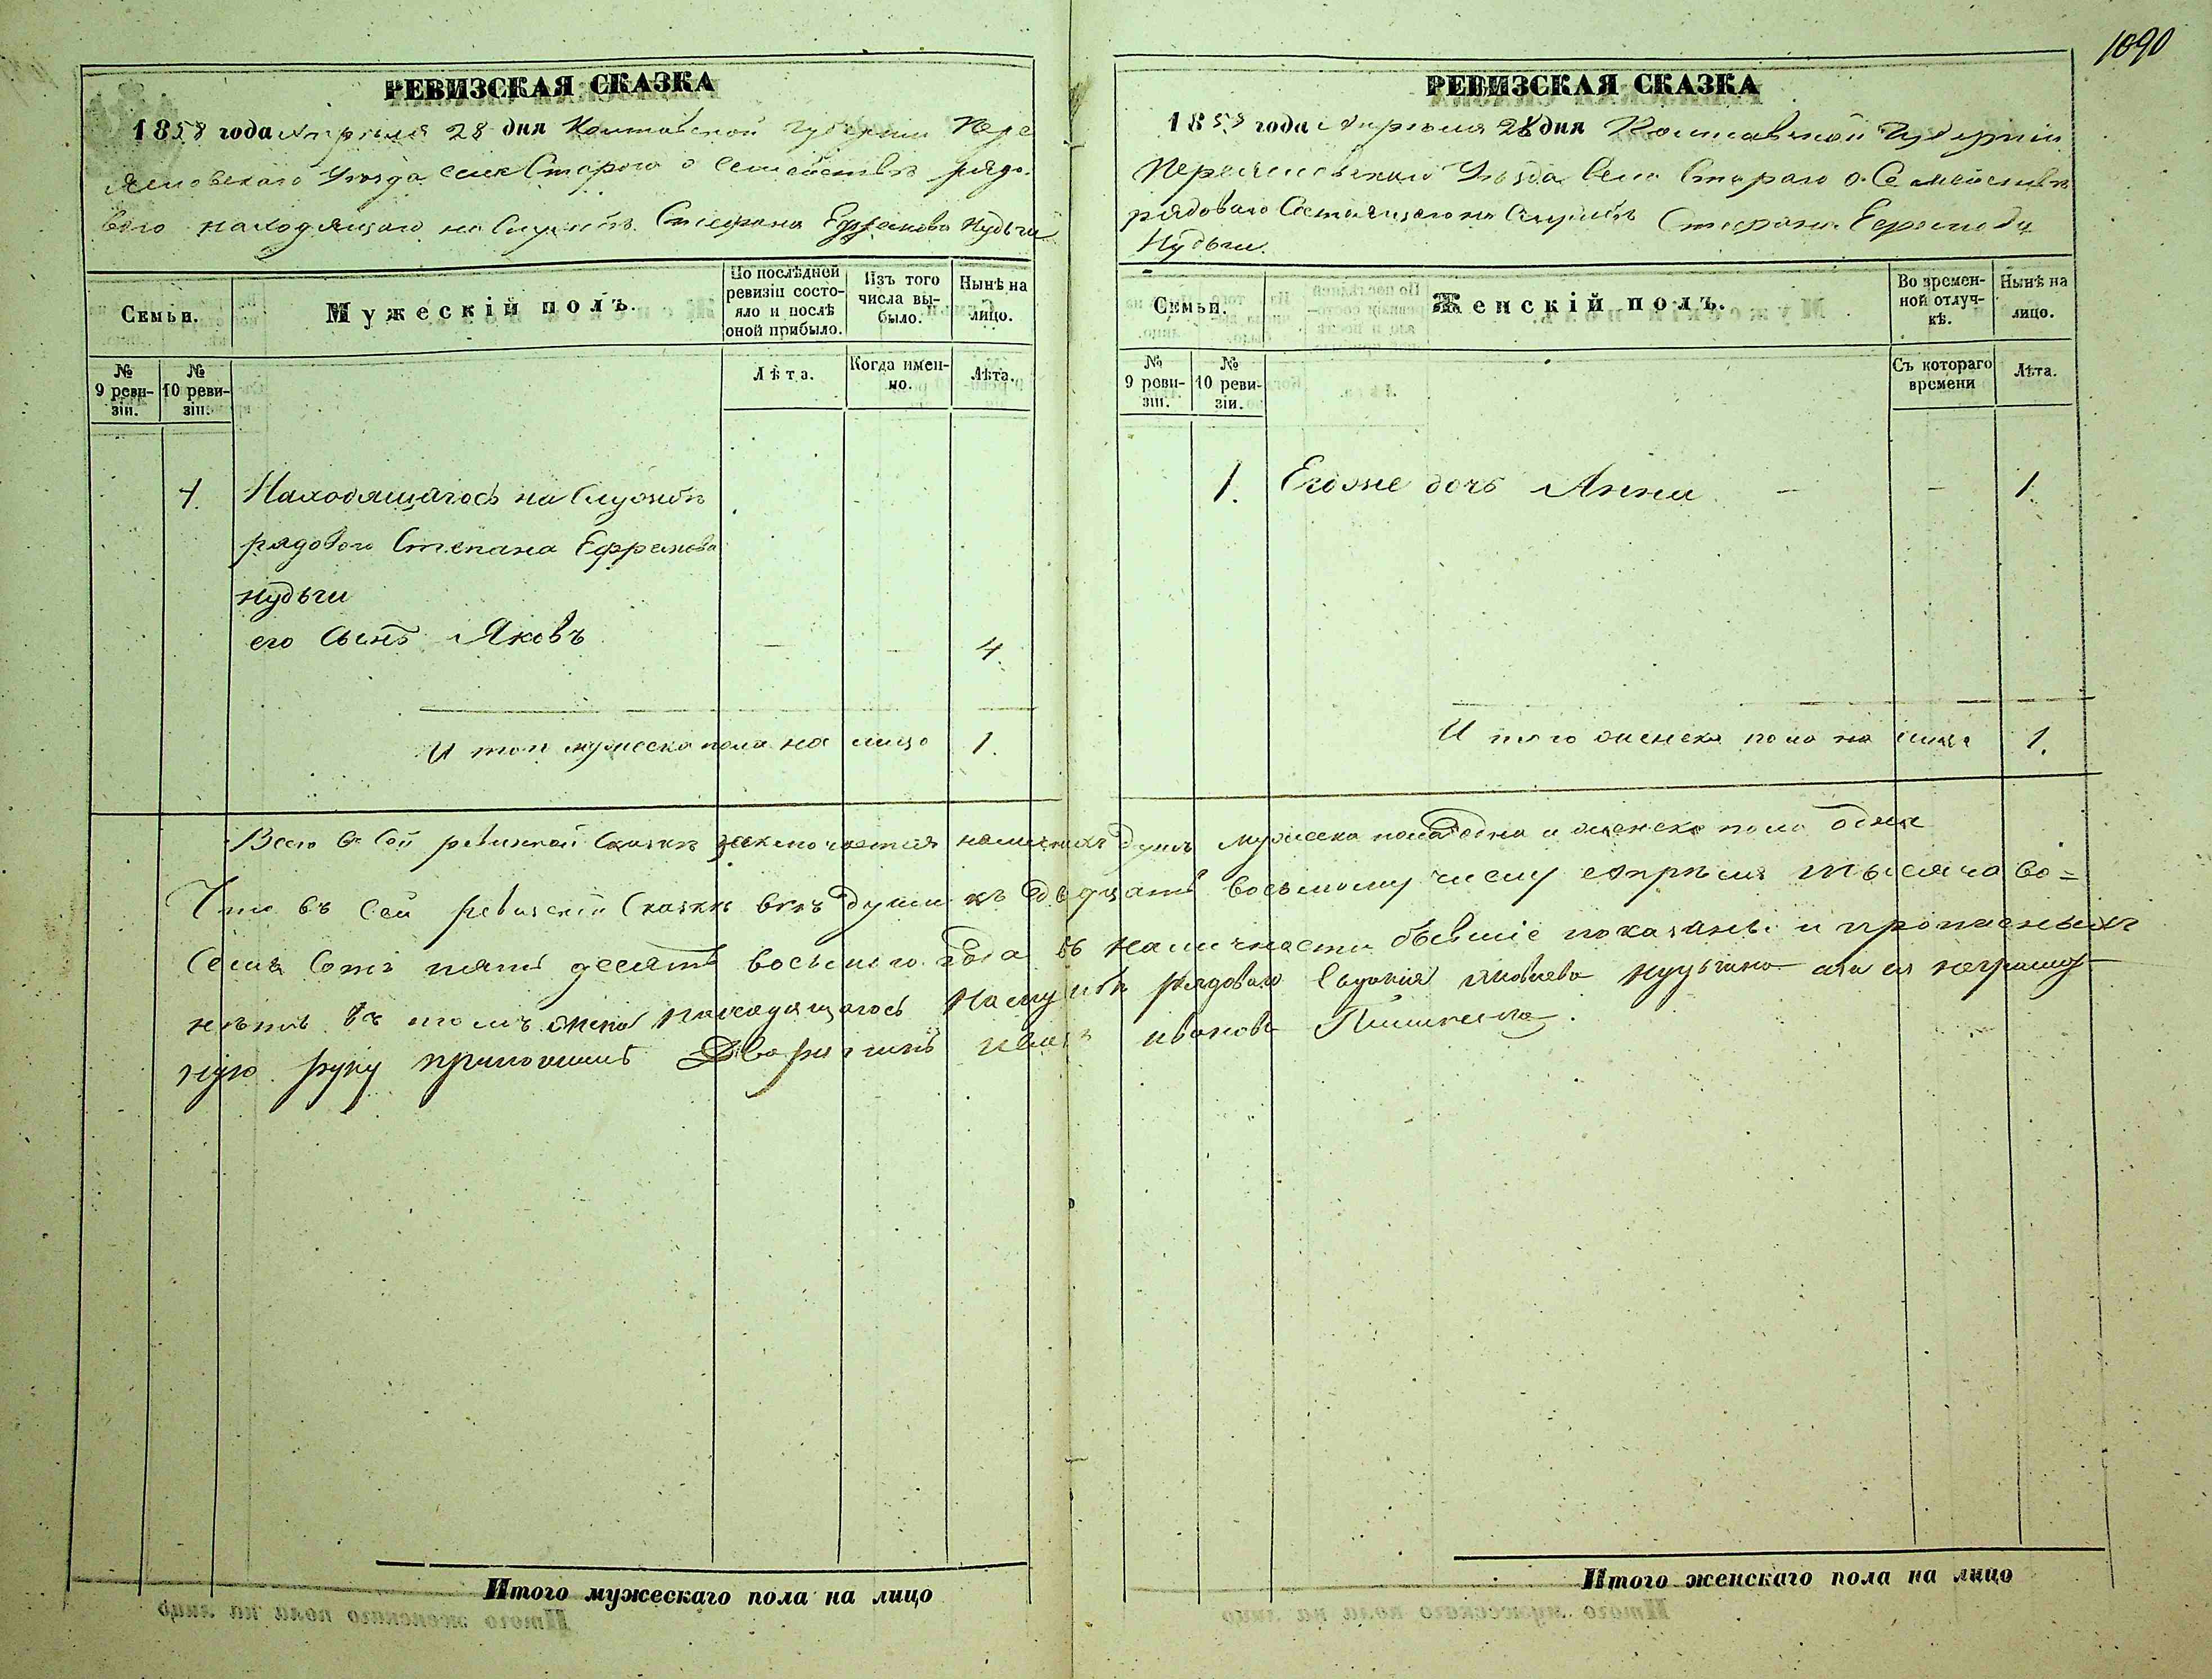 1090
РЕВИЗСКАЯ СКАЗКА
1858 года Апреля 28 дня Полтавской Губернии Пере
яславскаго Уезда села Стараго о Семействе рядо-
ваго находящаго на Службе Стефана Ефремова Нудьги
Семьи.
Мужескій полъ.
По послѣдней ревизіи состояло и послѣ оной прибыло.
Изъ того числа выбыло.
Нынѣ на лицо.
№ 9 ревизіи.
№ 10 ревизіи.
Лѣта.
Когда именно.
Лѣта.
1. Находящагось на Службѣ
рядового Степана Ефремова
Нудьги
его Сынъ Яковъ — — 4.
Итого мужеска пола на лицо 1.
РЕВИЗСКАЯ СКАЗКА
1858 года Апреля 28 дня Полтавской Губернии
Переяславскаго Уезда Села Стараго о Семействе
рядоваго Состоящаго на Службѣ Стефана Ефремова
Нудьги.
Семьи.
Женскій полъ.
Во временной отлучкѣ.
Нынѣ на лицо.
№ 9 ревизіи.
№ 10 ревизіи.
Съ котораго времени
Лѣта.
1. Егоже дочь Анна — — 1.
Итого женска пола на лицо 1.
Всего в Сей ревизской Сказкѣ заключается наличныхъ Душъ мужеска пола одна и женска пола одна
Что въ Сей ревизской Сказкѣ всѣ Души къ двадцать восьмому числу апрѣля тысяча во=
семь Сотъ пятьдесятъ восьмого года въ наличности бывшіе показаны и прописныхъ
нѣтъ въ томъ жена находящагось На службѣ рядоваго Евдокія Нудьгина а за ея неграмот
ную руку приложилъ Дворянинъ Иванъ Иванов
Итого мужескаго пола на лицо
Итого женскаго пола на лицо